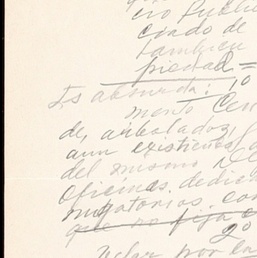 cro públic
ciado de
tambien
piedad = 
1o
Es absurdo:
mento Cen
de, arbolados,
aun existiendo
del mismo
Oficinas, dedic
migratorias, con
que no fija
2o
Velar por la